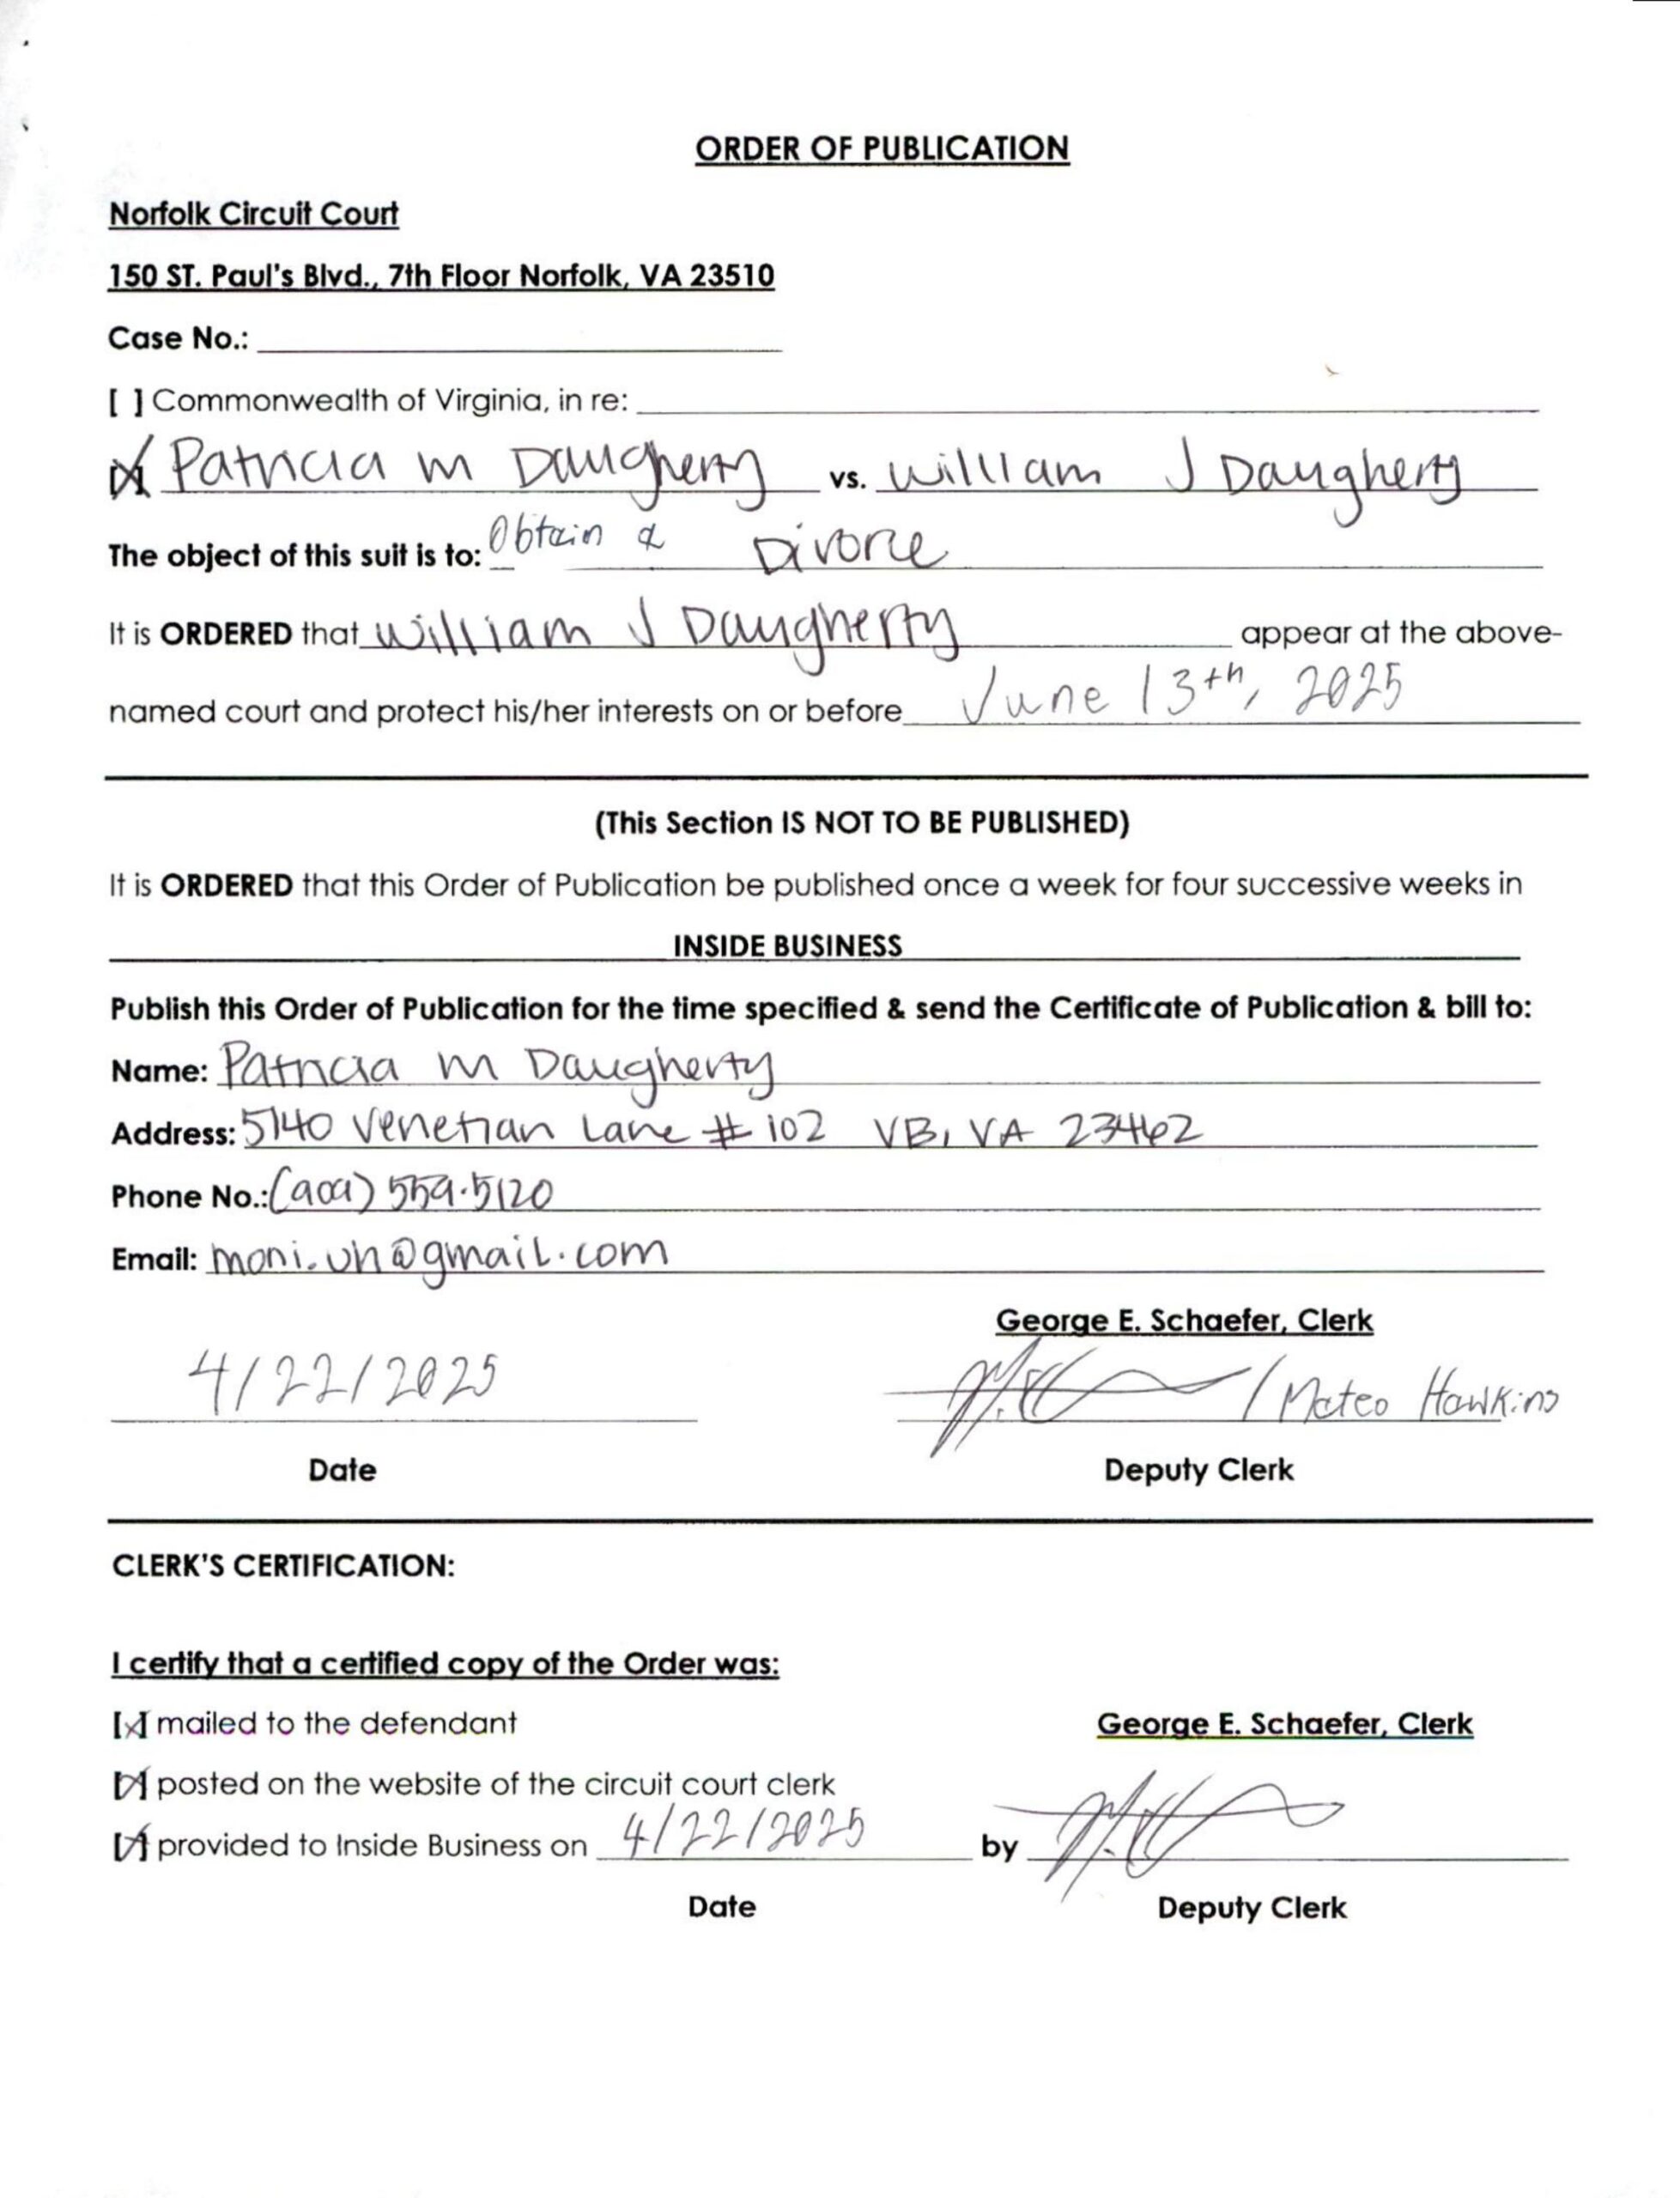 ORDER OF PUBLICATION
Norfolk Circuit Court
150 ST. Paul's Blvd., 7th Floor Norfolk, VA 23510
Case No.:
[ ] Commonwealth of Virginia, in re:
[X] Patricia M Daugherty vs. William J Daugherty
The object of this suit is to: Obtain a Divorce
It is ORDERED that William J Daugherty appear at the above-
named court and protect his/her interests on or before June 13th, 2025
(This Section IS NOT TO BE PUBLISHED)
It is ORDERED that this Order of Publication be published once a week for four successive weeks in
INSIDE BUSINESS
Publish this Order of Publication for the time specified & send the Certificate of Publication & bill to:
Name: Patricia M Daugherty
Address: 5140 Venetian Lane # 102 VB, VA 23462
Phone No.: 559.5120
Email: moni.vh@gmail.com
George E. Schaefer, Clerk
4/22/2025 / Mateo Hawkins
Date Deputy Clerk
CLERK'S CERTIFICATION:
I certify that a certified copy of the Order was:
[X] mailed to the defendant George E. Schaefer, Clerk
[X] posted on the website of the circuit court clerk
[X] provided to Inside Business on 4/22/2025 by
Date Deputy Clerk